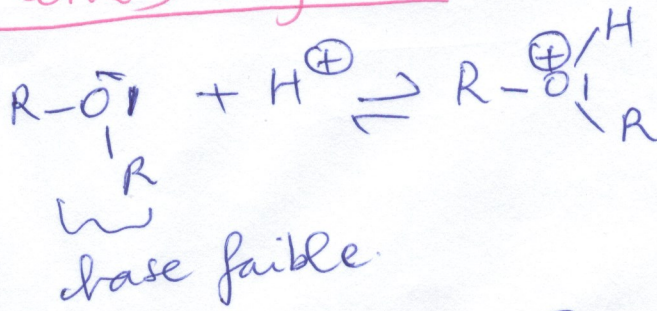 R-O + H⊕ ⇌ R-O⊕ H
R R
base faible.